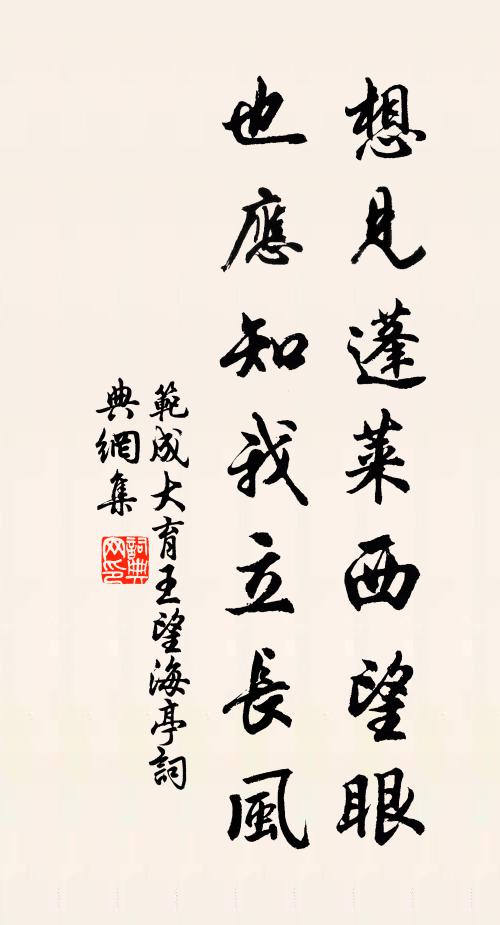 想見蓬萊西望眼
也應知我立長風
範成大育王望海亭詞
典網集
詞典网印